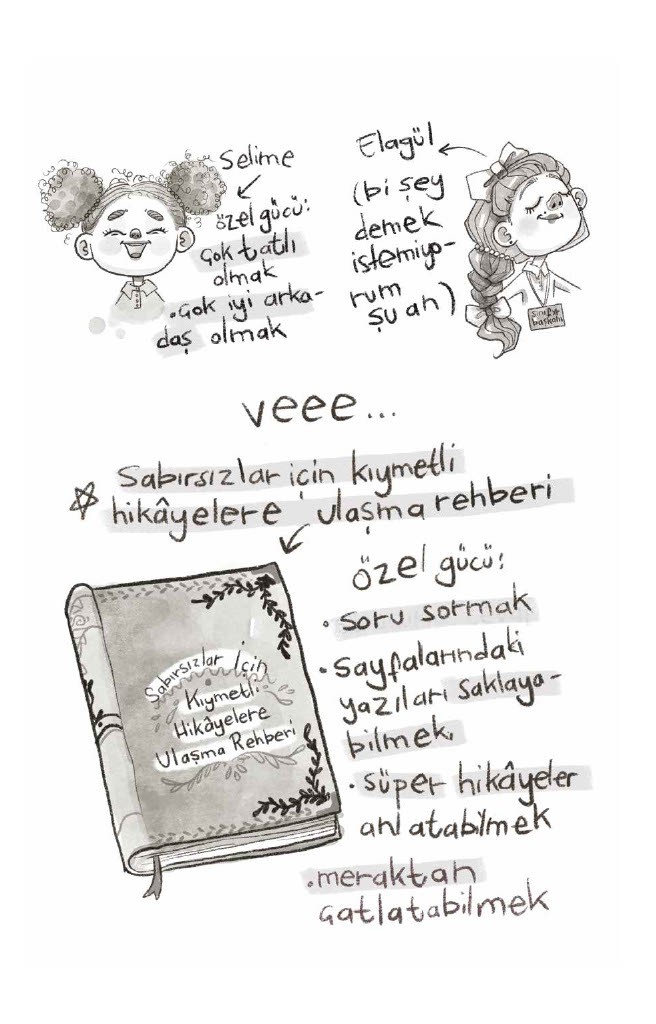 Selime
özel gücü:
çok tatlı
olmak
.çok iyi arka-
daş olmak
Elagül
(bi şey
demek
istemiyo-
rum
şu an)
sınıf
başkanı
veee...
Sabırsızlar için kıymetli
hikâyelere ulaşma rehberi
Sabırsızlar İçin
Kıymetli
Hikâyelere
Ulaşma Rehberi
özel gücü:
. soru sormak
. sayfalarındaki
yazıları saklaya-
bilmek.
. süper hikâyeler
anlatabilmek
.meraktan
çatlatabilmek